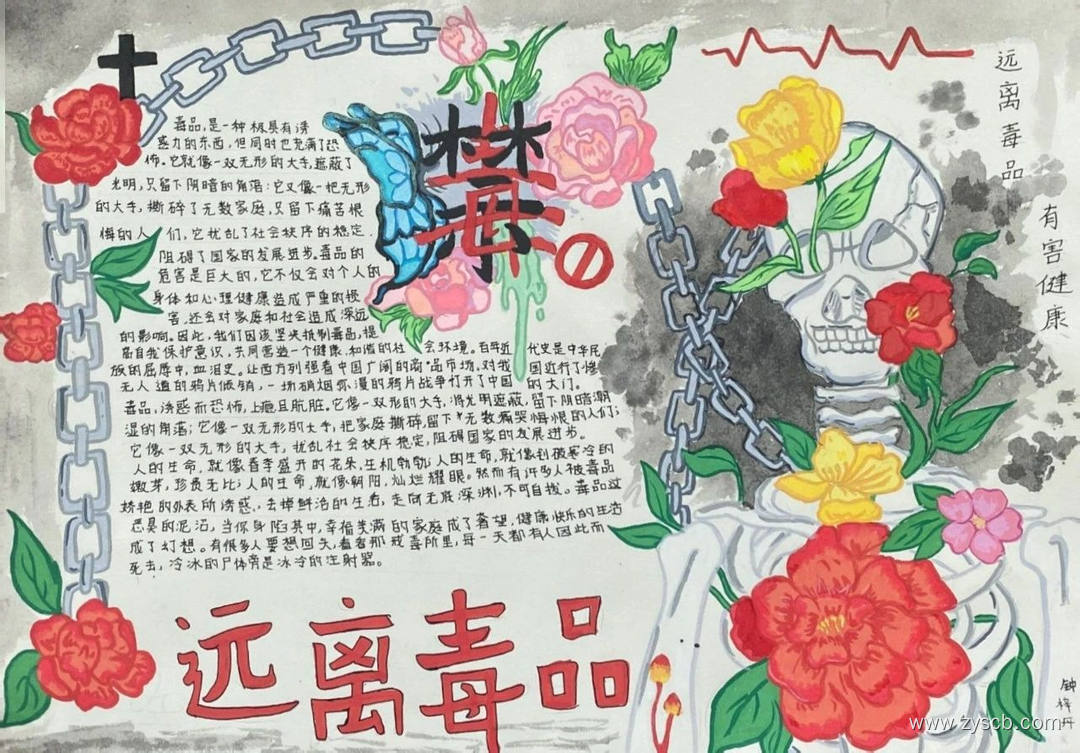 毒品,是一种极具有诱
惑力的东西,但同时也充满了恐
怖。它就像一双无形的大手,遮蔽了
光明,只留下阴暗的角落;它又像一把无形
的大手,撕碎了无数家庭,只留下痛苦悔
悔的人们,它扰乱了社会秩序的稳定,
阻碍了国家的发展进步。毒品的
危害是巨大的,它不仅会对个人的
身体和心理健康造成严重的损
害,还会对家庭和社会造成深远
的影响。因此,我们因该坚决抵制毒品,提
高自我保护意识,共同营造一个健康、和谐的社会环境。百年近代史是中华民
族的屈辱史,血泪史。让西方列强看中国广阔的商品市场,对我国进行了惨
无人道的鸦片倾销,一场硝烟弥漫的鸦片战争打开了中国的大门。
毒品,诱惑而恐怖,上瘾且肮脏。它像一双形的大手,将光明遮蔽,留下阴暗潮
湿的角落;它像一双无形的大手,把家庭撕碎,留下无数痛哭悔恨的人们;
它像一双无形的大手,扰乱社会秩序稳定,阻碍国家的发展进步。
人的生命,就像春季盛开的花朵,生机勃勃;人的生命,就像刺破寒冷的
嫩芽,珍贵无比;人的生命,就像朝阳,灿烂耀眼。然而有许多人被毒品
娇艳的外表所诱惑,去掉鲜活的生活,走向无底深渊,不可自拨。毒品这
恶臭的泥沼,当你身陷其中,幸福美满的家庭成了奢望,健康快乐的生活
成了幻想。有很多人要想回头,看着那戒毒所里,每一天都有人因此而
死去,冷冰的尸体旁是冰冷的注射器。
禁毒
远离毒品
远离毒品
有害健康
钟梓丹
www.zyscb.com